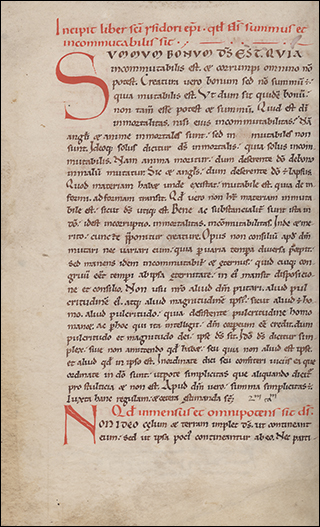 Incipit liber scī ysidori epī. qđ dš summus et
incommutabilis sit.
SUMMUM BONUM DŠ EST. QUIA
incommutabilis est. et corrumpi omnino nō
potest. Creatura uero bonum sed nō summū ē:
qua mutabilis est. Et dum sit quidē bonū:
non tam̄ esse potest et summū. Quid est dī
inmortalitas. nisi eius incommutabilitas? Nā
angłi et anime inmortales sunt. sed inmutabiles non
sunt. Ideoq; solus dicitur dš inmortalis. quia solus incom
mutabilis. Nam anima moritur. dum deserente dō de bono
in malū mutatur. Sic et angłs. dum deserente dō ē lapsus.
Quod materiam habet unde existat. mutabile est. quia de in
formi. ad formam transit. Qđ uero non ht materiam inmuta
bile est. sicut dš utiq; est. Bene ac substantialit sunt ista in
dō. idest incorruptio. inmortalitas. incōmutabilitas. Inde et me
rito. cuncte creature. Opus non consiliū apđ dm̄
mutari. nec uariari eum. quia p uaria tempora diuersa
sed manens idem incommutabilis et eternus. quid cuiq; con
gruū eēt tempi ab ipsa eternitate in ei mansit dispositio
ne et consilio. Non usu nrō aliud dm̄ putari. aliud pul
critudinē ei. atq; aliud magnitudinē ipsi. sicut aliud ē ho
mo. aliud pulcritudo. quia desistente pulcritudine homo
manet. ac phoc qui ita intelligit. dm̄ corpeum eē credit. dum
pulcritudo et magnitudo dei ipse dš sit. Ido dš dicitur sim
plex. siue non amittendo qđ habet. seu quia non aliud est ipse
et aliud qđ in ipso est. Inordinate dici seu conferri uicus ea que
ordinate in dō sunt. utpote simplicitas que aliquando dicit
pro stulticia et non est. Apud dm̄ uero summa simplicitas ē.
Iuxta hanc regulam. et cetera estimanda sē
Qđ inmensus et omnipotens sit dš.
NON IDEO celum et terram implet dš. ut contineant
eum. sed ut ipsa poci contineantur ab eo. Nec parti